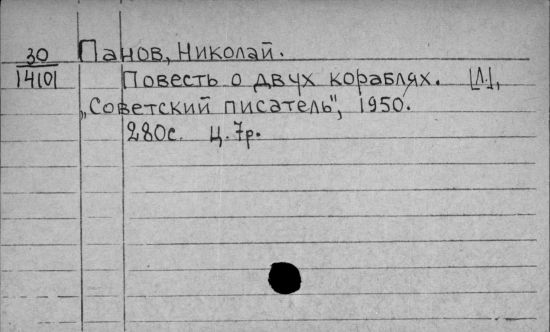 30 Панов, Николай.
14101 Повесть о двух кораблях. [Л.],
„Советский писатель", 1950.
280с. Ц. 7р.